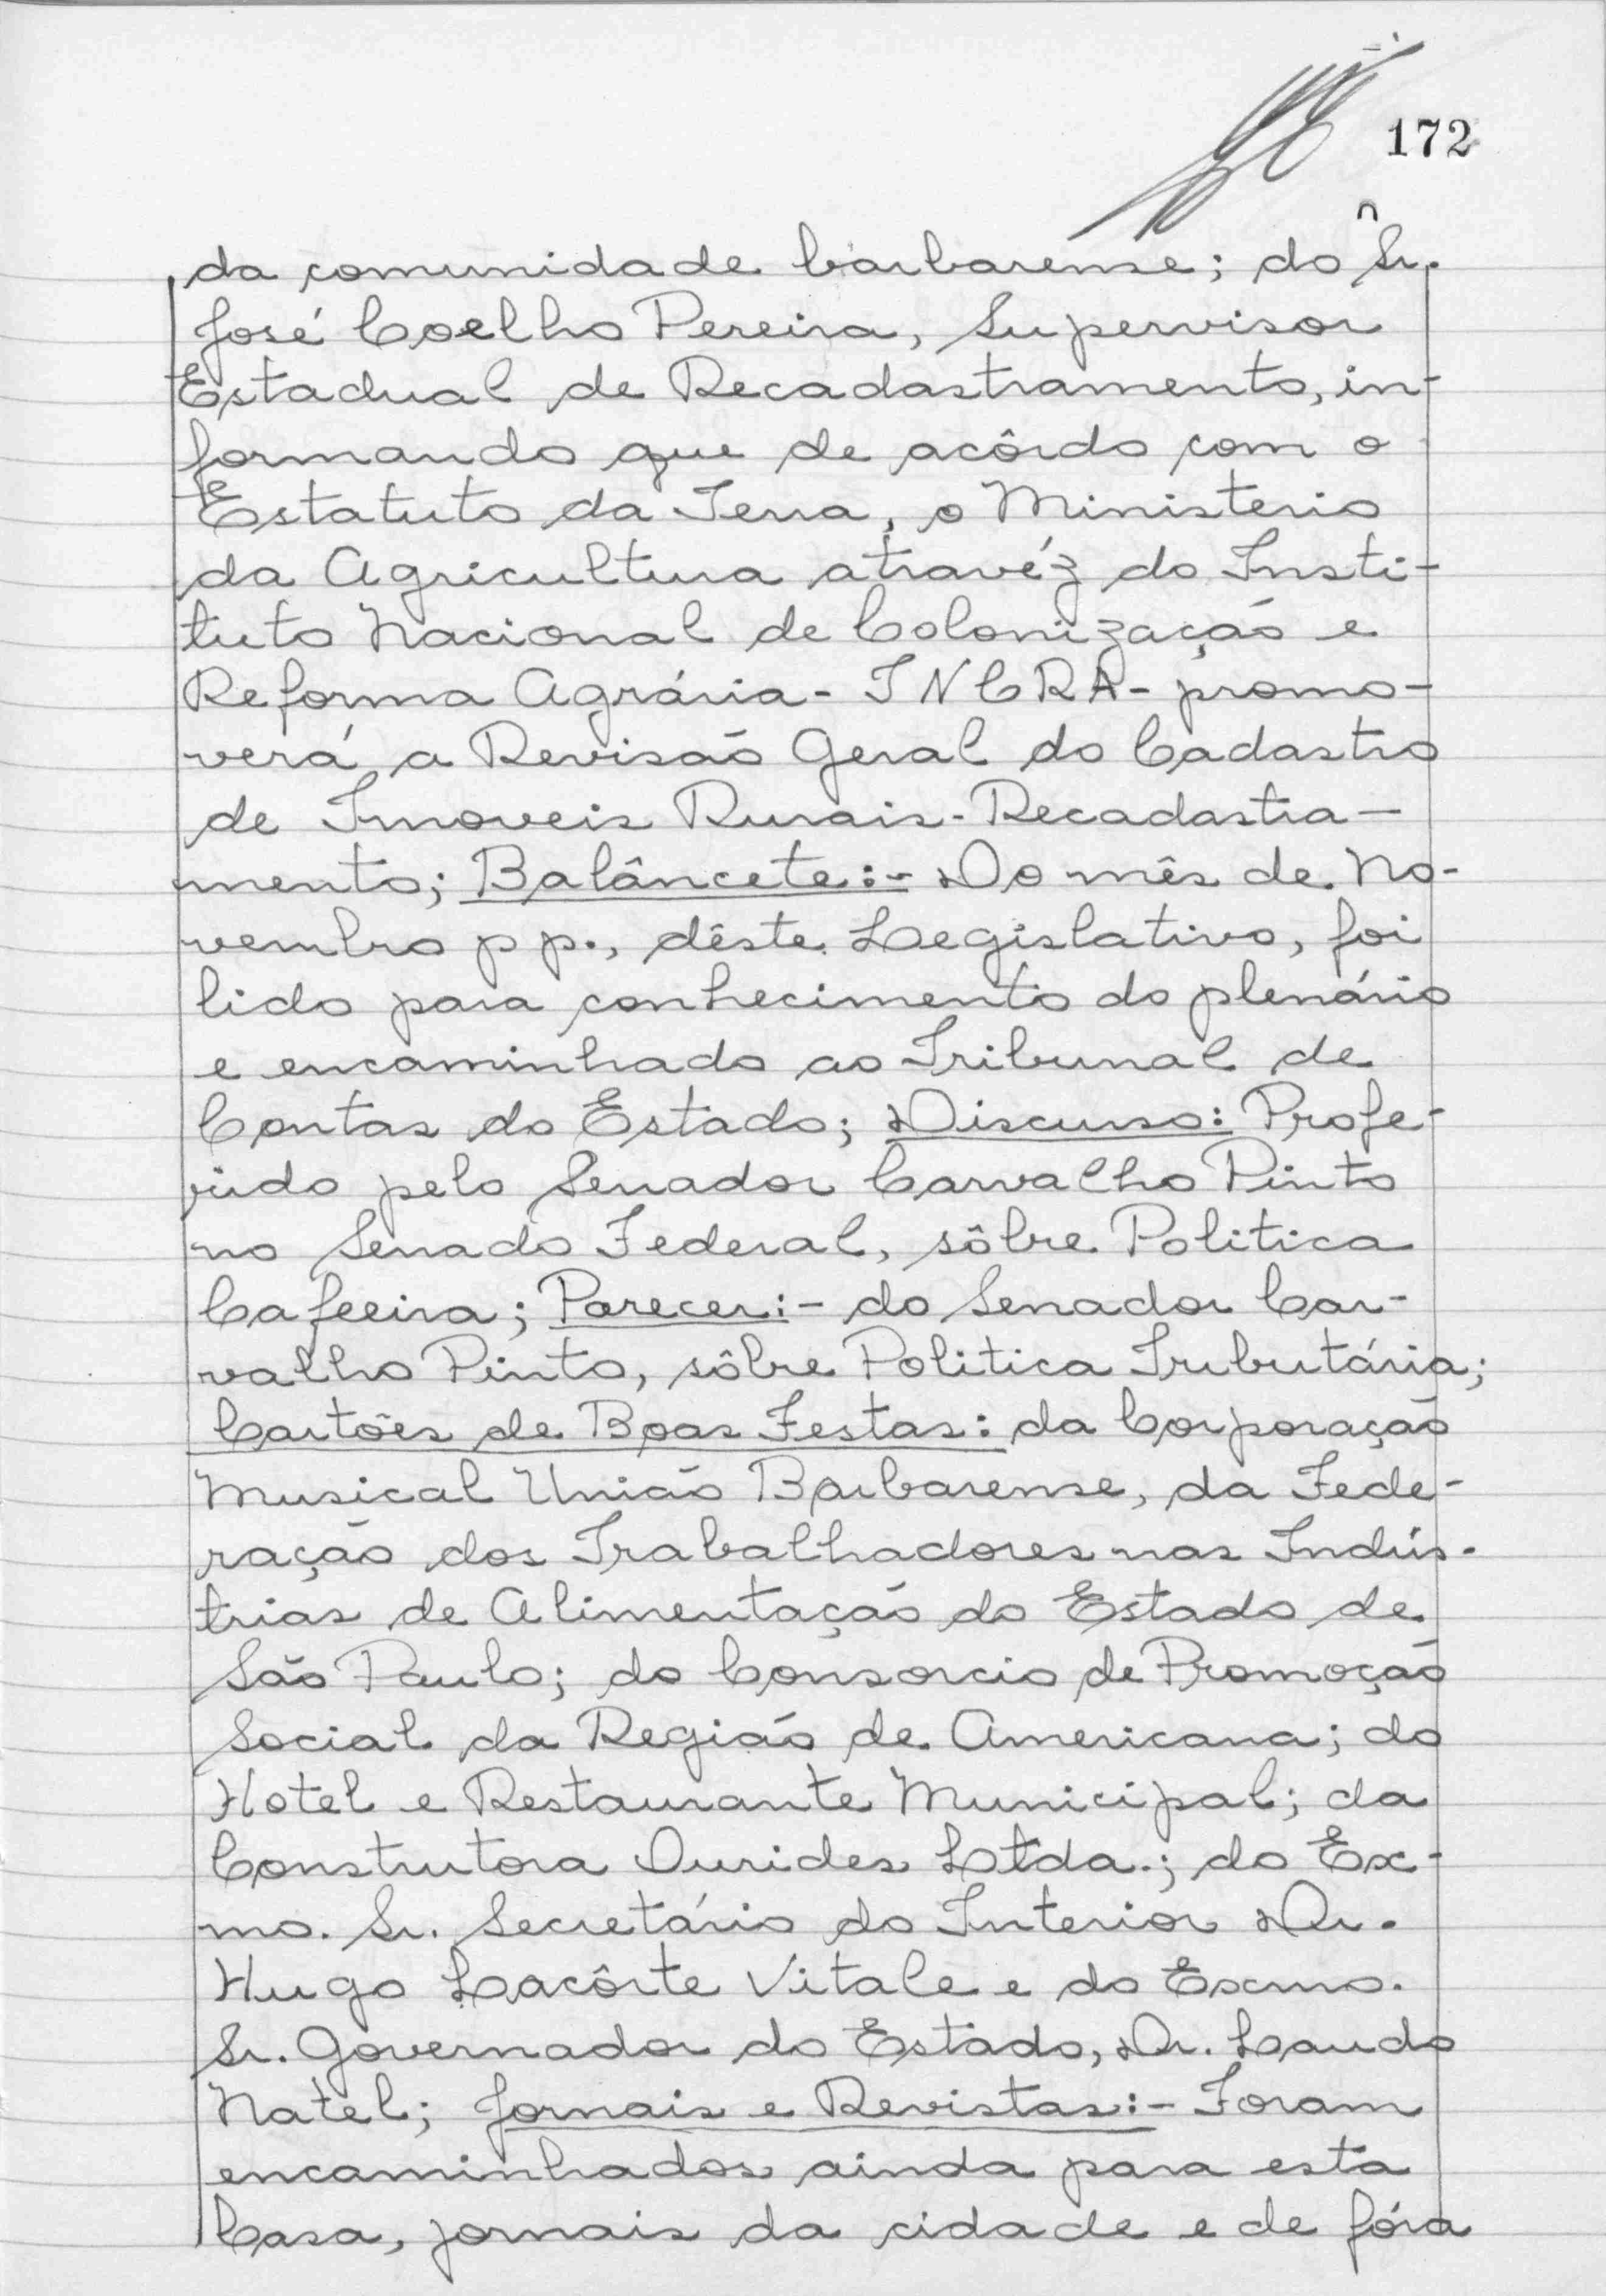 172
da comunidade barbarense; do Sr.
José Coelho Pereira, Supervisor
Estadual de Recadastramento, in-
formando que de acôrdo com o
Estatuto da Terra, o Ministerio
da Agricultura atravéz do Insti-
tuto Nacional de Colonização e
Reforma Agrária - INCRA - promo-
verá a Revisão Geral do Cadastro
de Imoveis Rurais - Recadastra-
mento; Balâncete:- Do mês de No-
vembro p p., dêste Legislativo, foi
lido para conhecimento do plenário
e encaminhado ao Tribunal de
Contas do Estado; Discurso: Profe-
rido pelo Senador Carvalho Pinto
no Senado Federal, sôbre Politica
Cafeeira; Parecer:- do Senador Car-
valho Pinto, sôbre Politica Tributária;
Cartões de Boas Festas: da Corporação
Musical União Barbarense, da Fede-
ração dos Trabalhadores nas Indús-
trias de Alimentação do Estado de
São Paulo; do Consorcio de Promoção
Social da Região de Americana; do
Hotel e Restaurante Municipal; da
Construtora Ourides Ltda.; do Ex-
mo. Sr. Secretário do Interior Dr.
Hugo Lacôrte Vitale e do Exmo.
Sr. Governador do Estado, Dr. Laudo
Natel; Jornais e Revistas:- Foram
encaminhados ainda para esta
Casa, jornais da cidade e de fóra